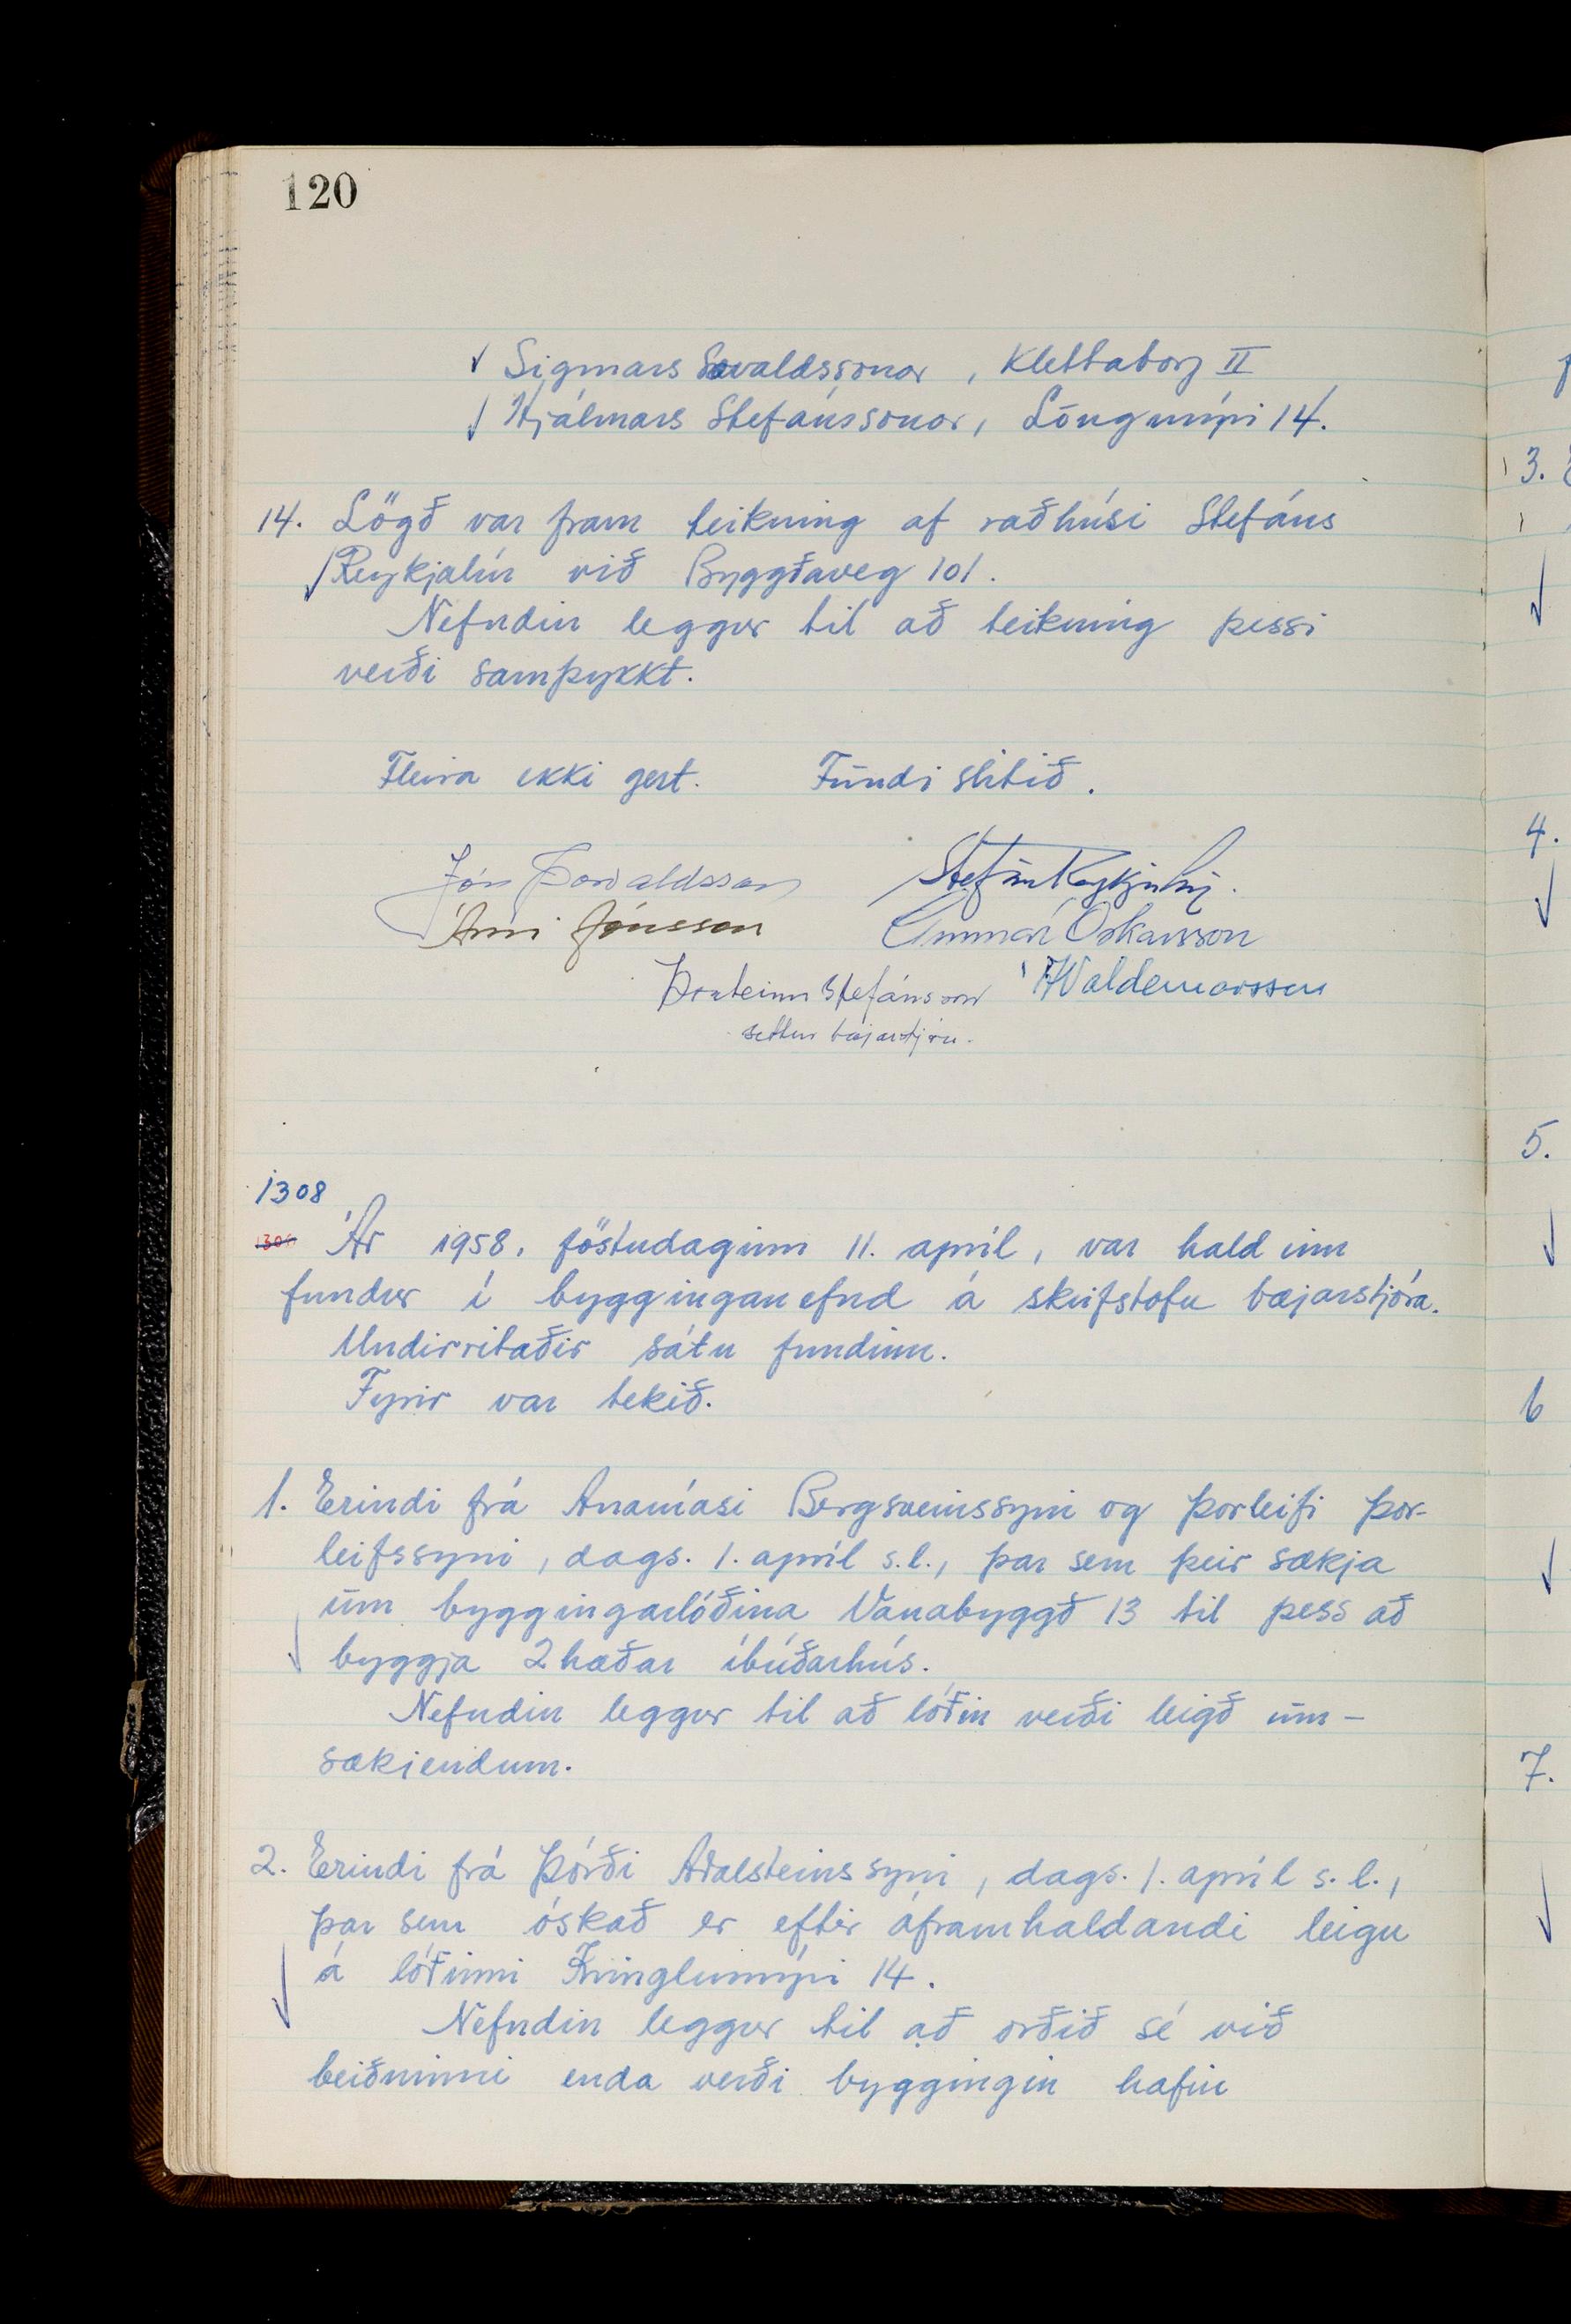 120
Sigmars Sævaldssonar, Klettaborg II
Hjálmars Stefánssonar, Löngumýri 14.
14. Lögð var fram teikning af raðhúsi Stefáns
Reykjalín við Byggðaveg 101.
Nefndin leggur til að teikning þessi
verði samþykkt.
Fleira ekki gert. Fundi slitið.
Jón Þorvaldsson Stefán Reykjalín.
Árni Jónsson Gunnar Óskarsson
Þorsteinn Stefánsson Waldemarsson
settur bæjarstjóri.
1308
Ár 1958, föstudaginn 11. apríl, var haldinn
fundur í bygginganefnd á skrifstofu bæjarstjóra.
Undirritaðir sátu fundinn.
Fyrir var tekið.
1. Erindi frá Ananíasi Bergsveinssyni og Þorleifi Þor-
leifssyni, dags. 1. apríl s.l., þar sem þeir sækja
um byggingarlóðina Vanabyggð 13 til þess að
byggja 2 hæðar íbúðarhús.
Nefndin leggur til að lóðin verði leigð um-
sækjendum.
2. Erindi frá Þórði Aðalsteinssyni, dags. 1. apríl s.l.,
þar sem óskað er eftir áframhaldandi leigu
á lóðinni Kringlumýri 14.
Nefndin leggur til að orðið sé við
beiðninni enda verði byggingin hafin
3.
4.
5.
6
7.